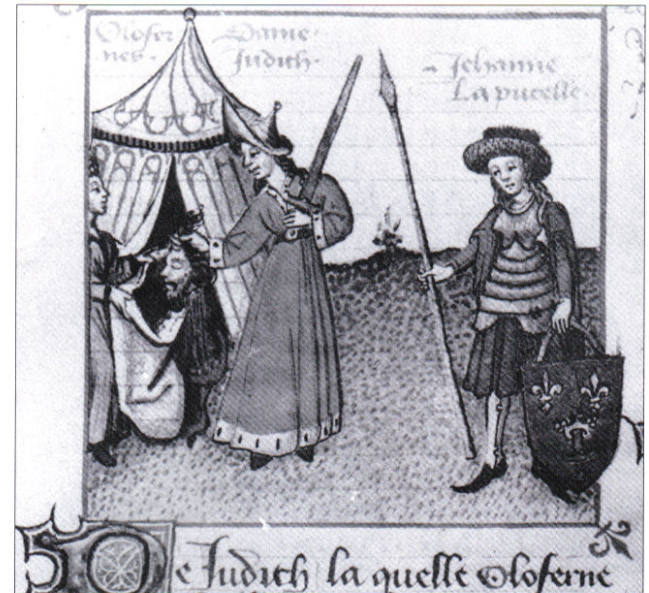 Olofer
nes.
Dame.
Judith.
Jehanne
La pucelle.
De Judith la quelle Oloferne